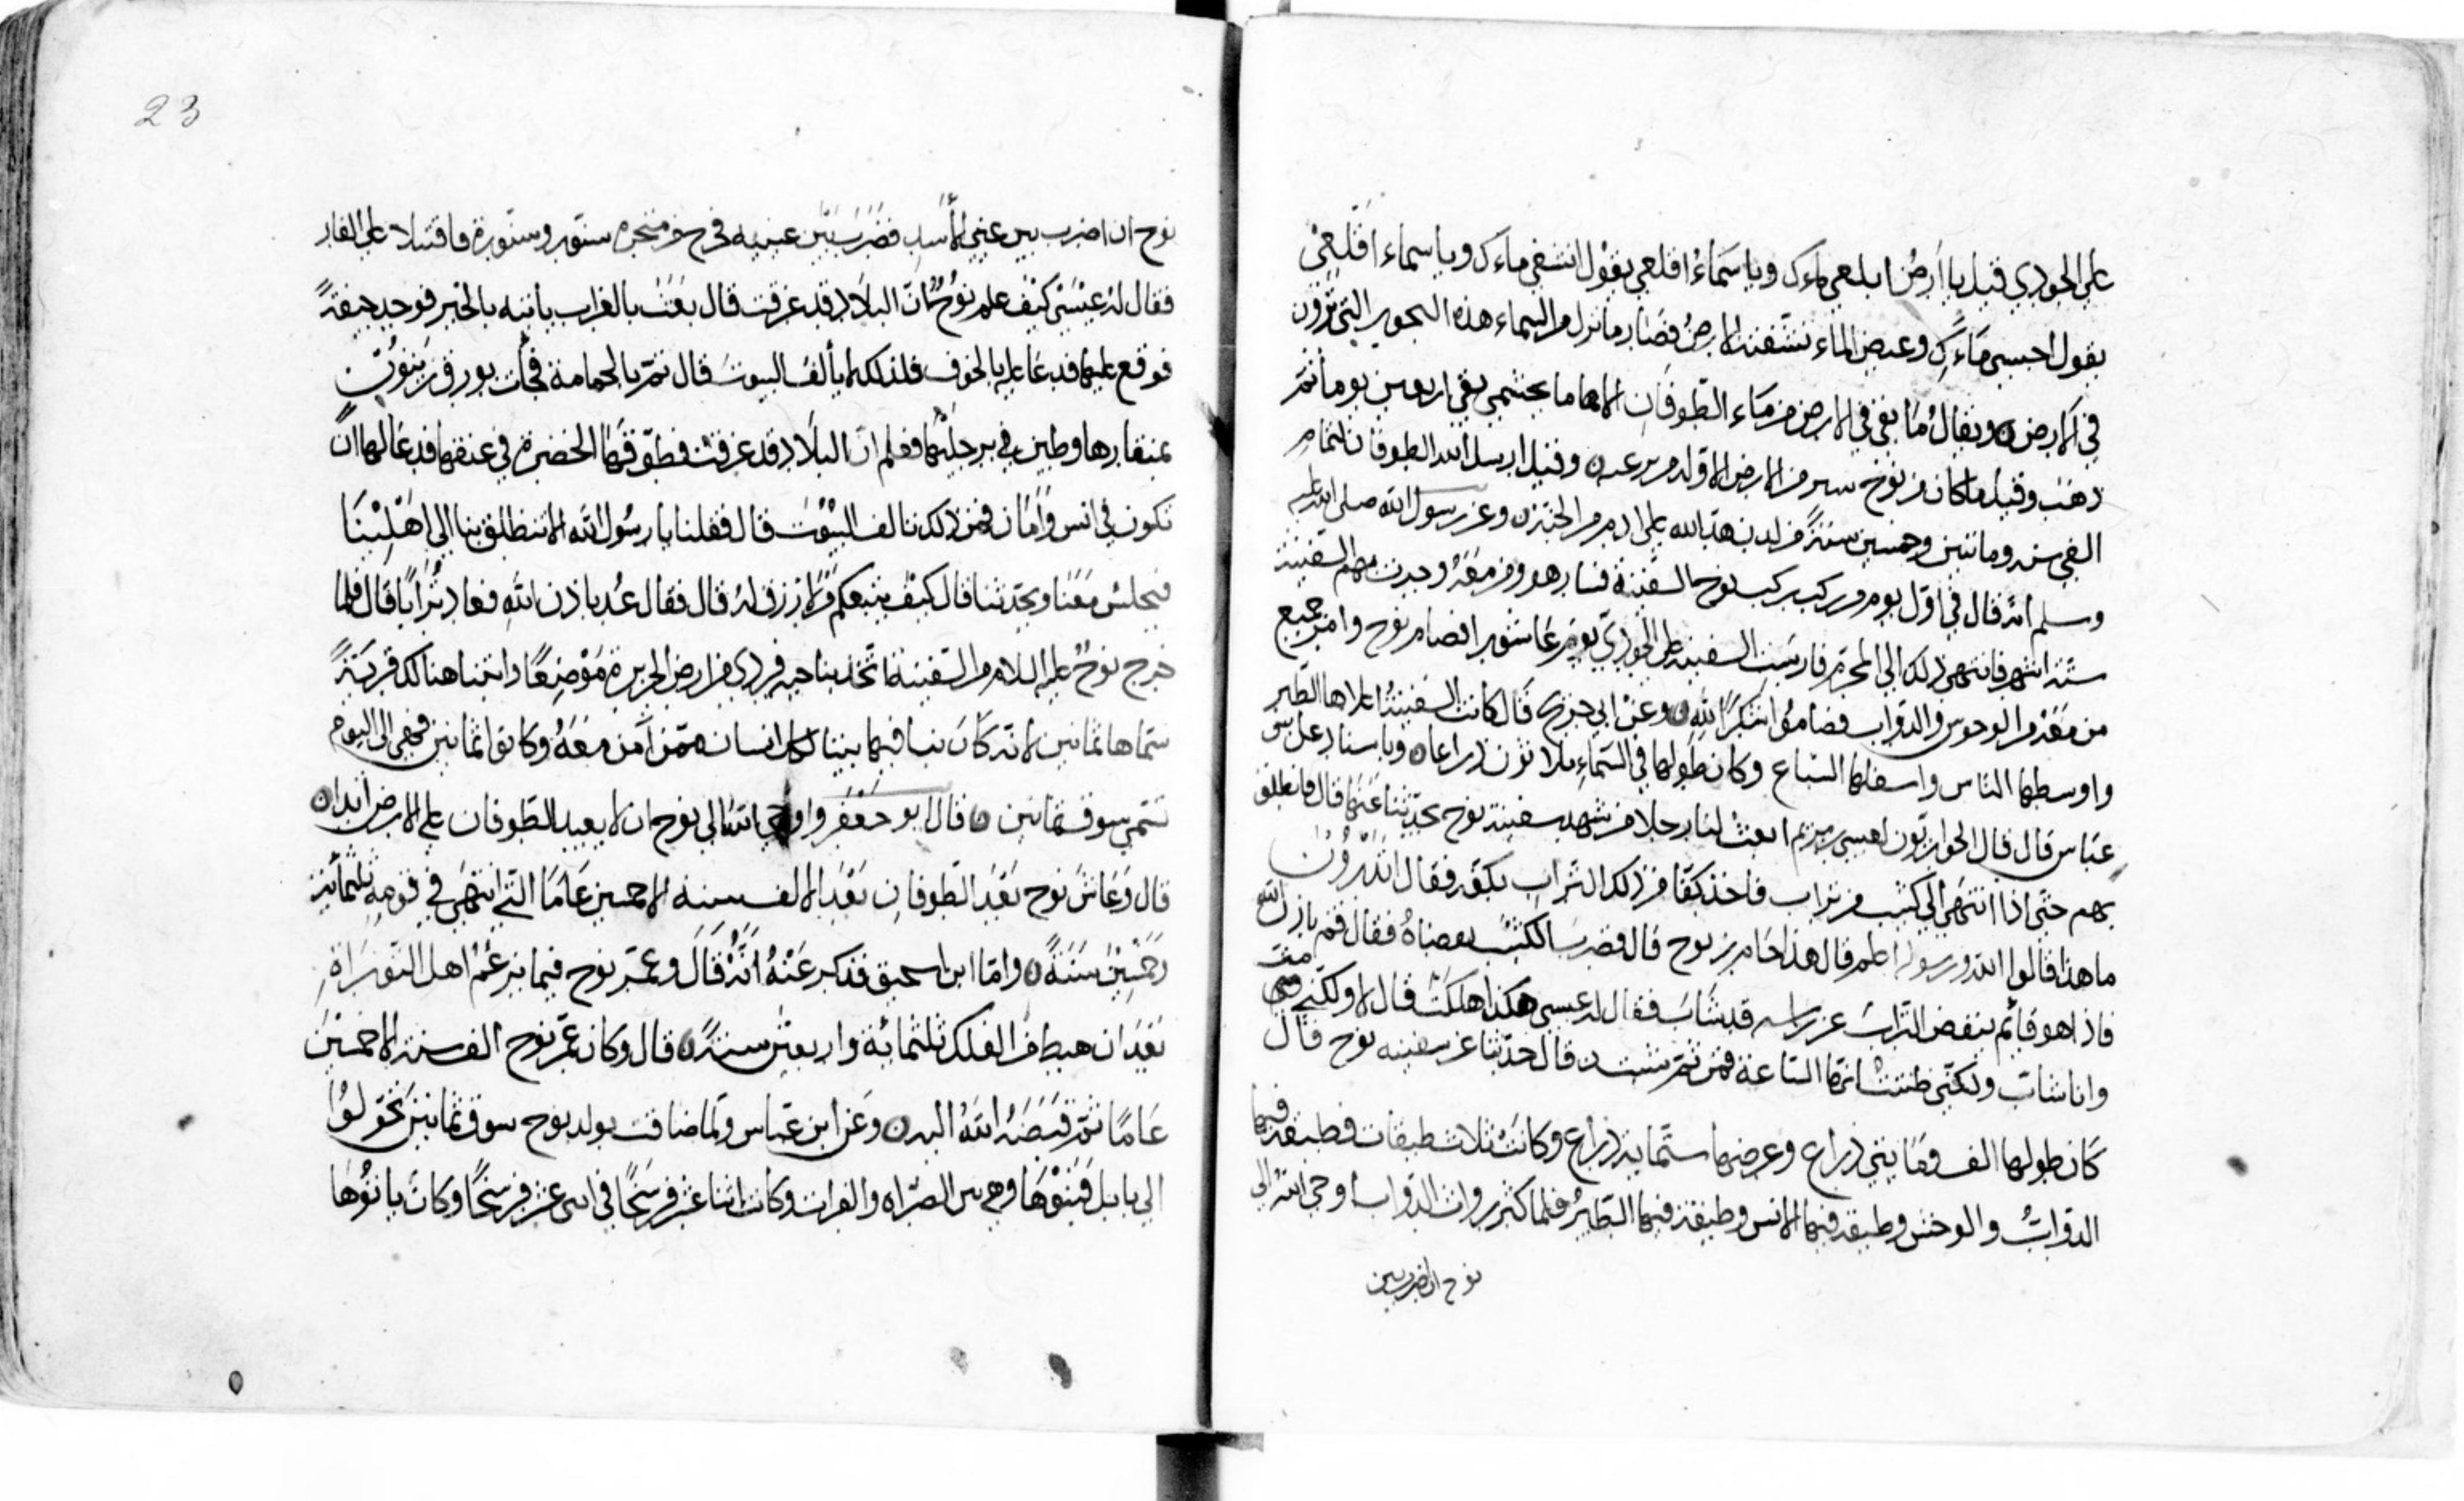 على الجودي قيل يا ارض ابلعي ماءك ويا سماء اقلعي يقول انشفي ماءك ويا سماء اقلعي
يقول احبسي ماءك وغيض الماء نشفته الارض فصار ما نزل من السماء هذه البحور التي ترون
في الارض ويقال ما بقي في الارض من ماء الطوفان الا ماء بحشمي بقي اربعين يوما ثم
ذهب وقيل ما كان من نوح الارض الاول وقيل ارسل الله الطوفان لتمام
الفي سنه ومائتين وخمسين سنة من لدن اهبط الله على ادم من الجنة وعن رسول الله صلى الله عليه
وسلم انه قال في اول يوم من رجب ركب نوح السفينة فسار هو ومن معه وجرت بهم السفينة
ستة اشهر فانتهى ذلك الى المحرم فارست السفينة على الجودي يوم عاشورا فصام نوح وامر جميع
من معه من الوحوش والدواب فصاموا شكرا لله وعن ابن جريج قال كانت السفينة اعلاها الطير
واوسطها الناس واسفلها السباع وكان طولها في السماء ثلاثون ذراعا وباسناد عن ابن
عباس قال قال الحواريون لعيسى بن مريم ابعث لنا رجلا من شهد سفينة نوح يحدثنا عنها قال فانطلق
بهم حتى اذا انتهى الى كثيب من تراب فاخذ كفا من ذلك التراب بكفه فقال اتدرون
ما هذا قالوا الله ورسوله اعلم قال هذا حام بن نوح قال فضرب الكثيب بعصاه فقال قم باذن الله
فاذا هو قائم ينفض التراب عن راسه قد شاب فقال له عيسى هكذا هلكت قال لا ولكني مت
وانا شاب ولكني ظننت انها الساعة فمن ثم شبت قال حدثنا عن سفينه نوح قال
كان طولها الف ومايتي ذراع وعرضها ستماية ذراع وكانت ثلاث طبقات فطبقه فيها
الدواب والوحش وطبقه فيها الانس وطبقة فيها الطير فلما كثر روات الدواب اوحى الله الى
نوح ان اضرب بين
23
نوح ان اضرب بين عيني الاسد فضرب بين عينيه فخرج من منخره سنور وسنورة فاقبلا على الفار
فقال له عيسى كيف علم نوح ان البلاد قد غرقت قال بعث بالغراب ياتيه بالخبر فوجد جيفة
فوقع عليها فدعا عليه بالخوف فلذلك لا يألف البيوت قال ثم بالحمامة فجأت بورق زيتون
بمنقارها وطين في برجليها فعلم ان البلاد قد غرقت فطوقها الخضرة في عنقها فدعا لها ان
تكون في انس وامان فمن ذلك تالف البيوت قال فقلنا يا رسول الله الا تنطلق بنا الى اهلينا
فيجلس معنا ويحدثنا قال كيف يتبعكم من لا رزق له قال فقال عد باذن الله فعاد ترابا قال فلما
خرج نوح عليه السلام من السفينة اتخذ بناحيه قردي من ارض الجزيرة موضعا وابتنا هنالك قرية
سماها ثمانين لانه كان بنا فيها بيتا لكل انسان ممن آمن معه وكانوا ثمانين فهي الى اليوم
تسمى سوق ثمانين قال ابو جعفر واوحى الله الى نوح ان لا يعيد الطوفان على الارض ابدا
قال وعاش نوح بعد الطوفان بعد الالف سنه الا خمسين عاما التي انتهى في قومه ثلثمائة
وخمسين سنة واما ابن اسحق فذكر عنه انه قال وعمر نوح فيما يزعم اهل التوراة
بعد ان هبط من الفلك ثلثمائة واربعين سنة قال وكان عمر نوح الف سنة الا خمسين
عاما ثم قبضه الله اليه وعن ابن عباس ولما ضاقت بولد نوح سوق ثمانين تحولوا
الى بابل فبنوها وهي بين الصراه والفرات وكانت اثنا عشر فرسخا في اثنى عشر فرسخا وكان بابها